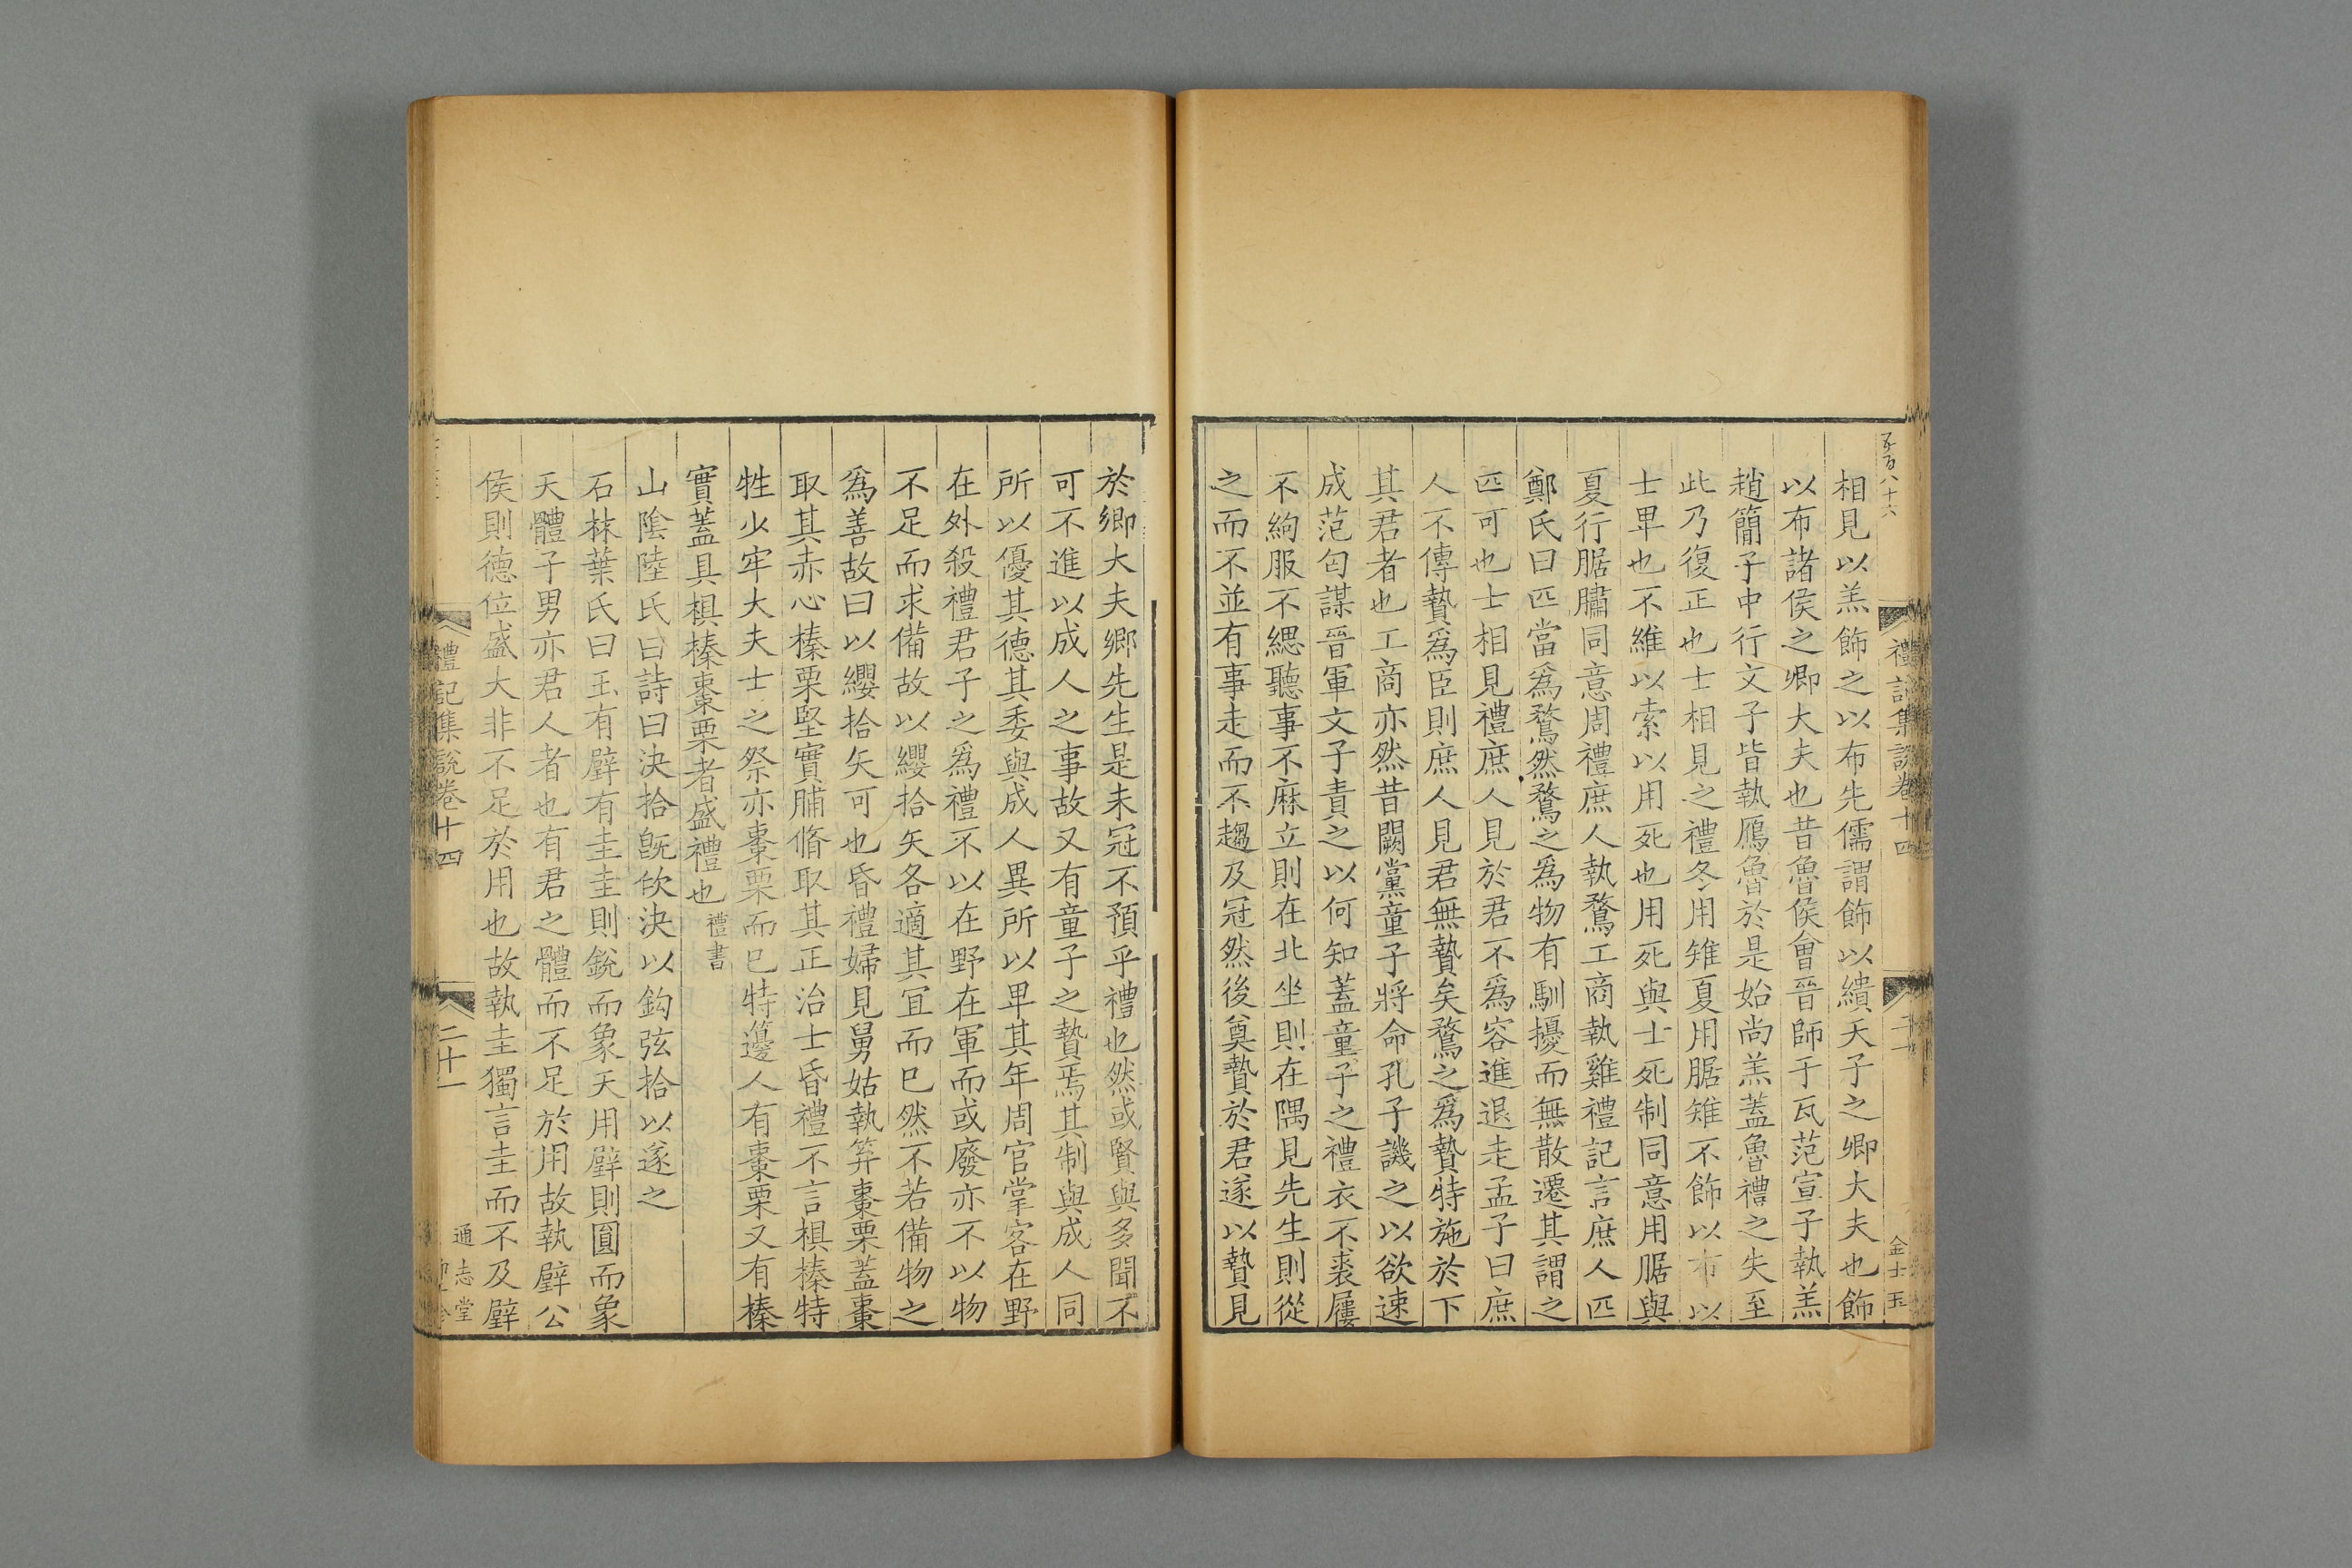 五百八十六
禮記集說卷十四
金士玉
相見以羔飾之以布先儒謂飾以繢天子之卿大夫也飾
以布諸侯之卿大夫也昔魯侯會晉師于瓦范宣子執羔
趙簡子中行文子皆執鴈魯於是始尚羔蓋魯禮之失至
此乃復正也士相見之禮冬用雉夏用腒雉不飾以布以
士卑也不維以索以用死也用死與士死制同意用腒與
夏行腒鱐同意周禮庶人執鶩工商執雞禮記言庶人匹
鄭氏曰匹當爲鶩然鶩之爲物有馴擾而無散遷其謂之
匹可也士相見禮庶人見於君不爲容進退走孟子曰庶
人不傳贄爲臣則庶人見君無贄矣鶩之爲贄特施於下
其君者也工商亦然昔闕黨童子將命孔子譏之以欲速
成范匄謀晉軍文子責之以何知蓋童子之禮衣不裘屨
不絇服不緦聽事不麻立則在北坐則在隅見先生則從
之而不並有事走而不趨及冠然後奠贄於君遂以贄見
於卿大夫鄉先生是未冠不預乎禮也然或賢與多聞不
可不進以成人之事故又有童子之贄焉其制與成人同
所以優其德其委與成人異所以卑其年周官掌客在野
在外殺禮君子之爲禮不以在野在軍而或廢亦不以物
不足而求備故以纓拾矢各適其宜而已然不若備物之
爲善故曰以纓拾矢可也昏禮婦見舅姑執笲棗栗蓋棗
取其赤心榛栗堅實脯脩取其正治士昏禮不言棋榛特
牲少牢大夫士之祭亦棗栗而已特籩人有棗栗又有榛
實蓋具棋榛棗栗者盛禮也禮書
山陰陸氏曰詩曰決拾旣佽決以鈎弦拾以遂之
石林葉氏曰玉有璧有圭圭則銳而象天用璧則圓而象
天體子男亦君人者也有君之體而不足於用故執璧公
侯則德位盛大非不足於用也故執圭獨言圭而不及璧
禮記集說卷十四
二十一
通志堂